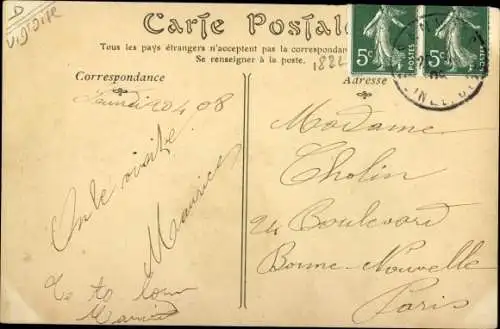 D
Carte Postale
Tous les pays étrangers n'acceptent pas la correspondance
Se renseigner à la poste.
1822
Correspondance
Adresse
5c
POSTES
5c
POSTES
20/4 08
On le visite
Maurice
Madame
Cholin
24 Boulevard
Bonne-Nouvelle
Paris